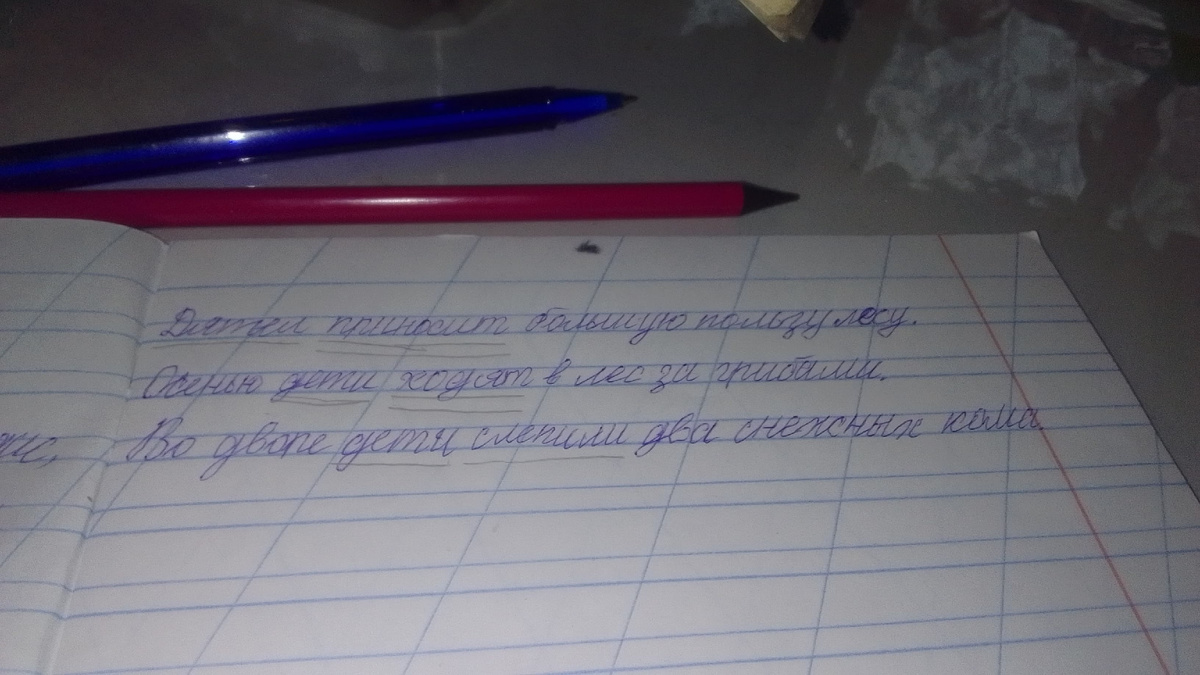 Дятел приносит большую пользу лесу.
Осенью дети ходят в лес за грибами.
Во дворе дети слепили два снежных кома.